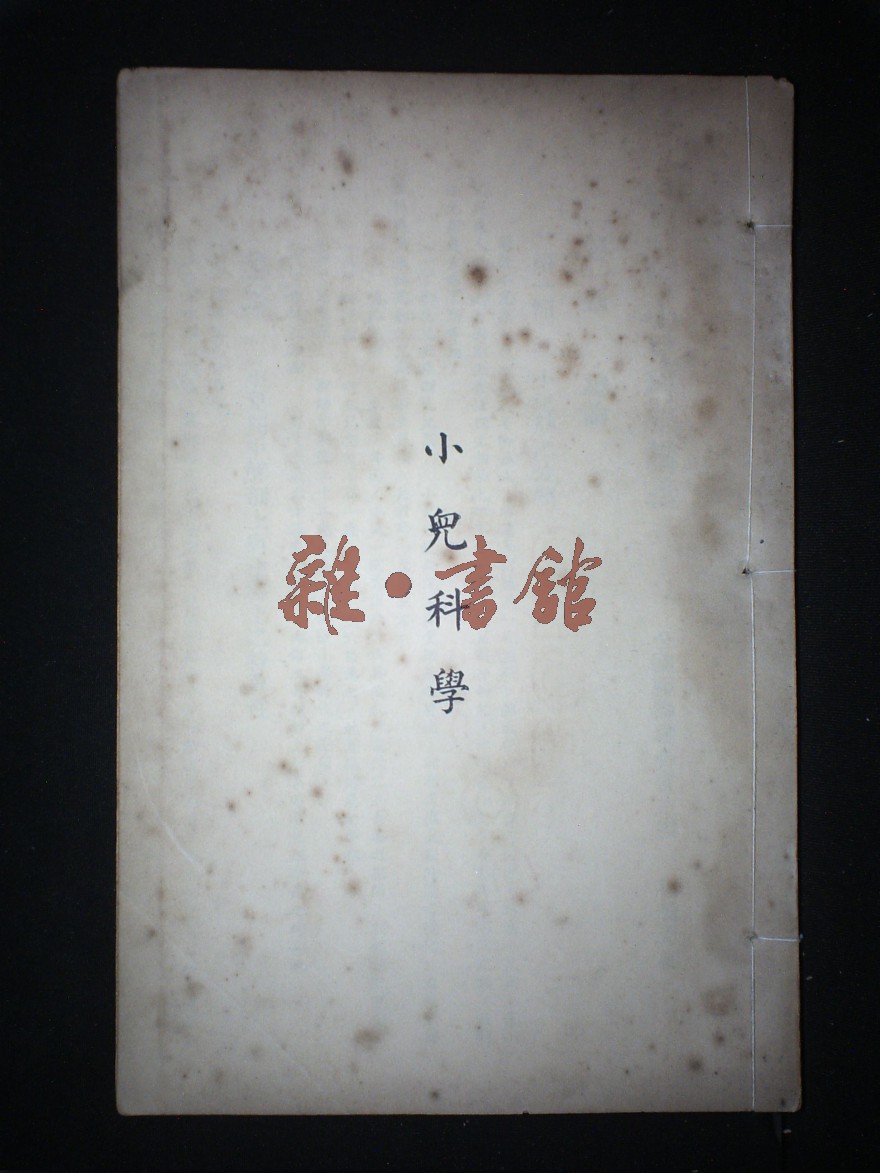 小兒科學
雜·書館